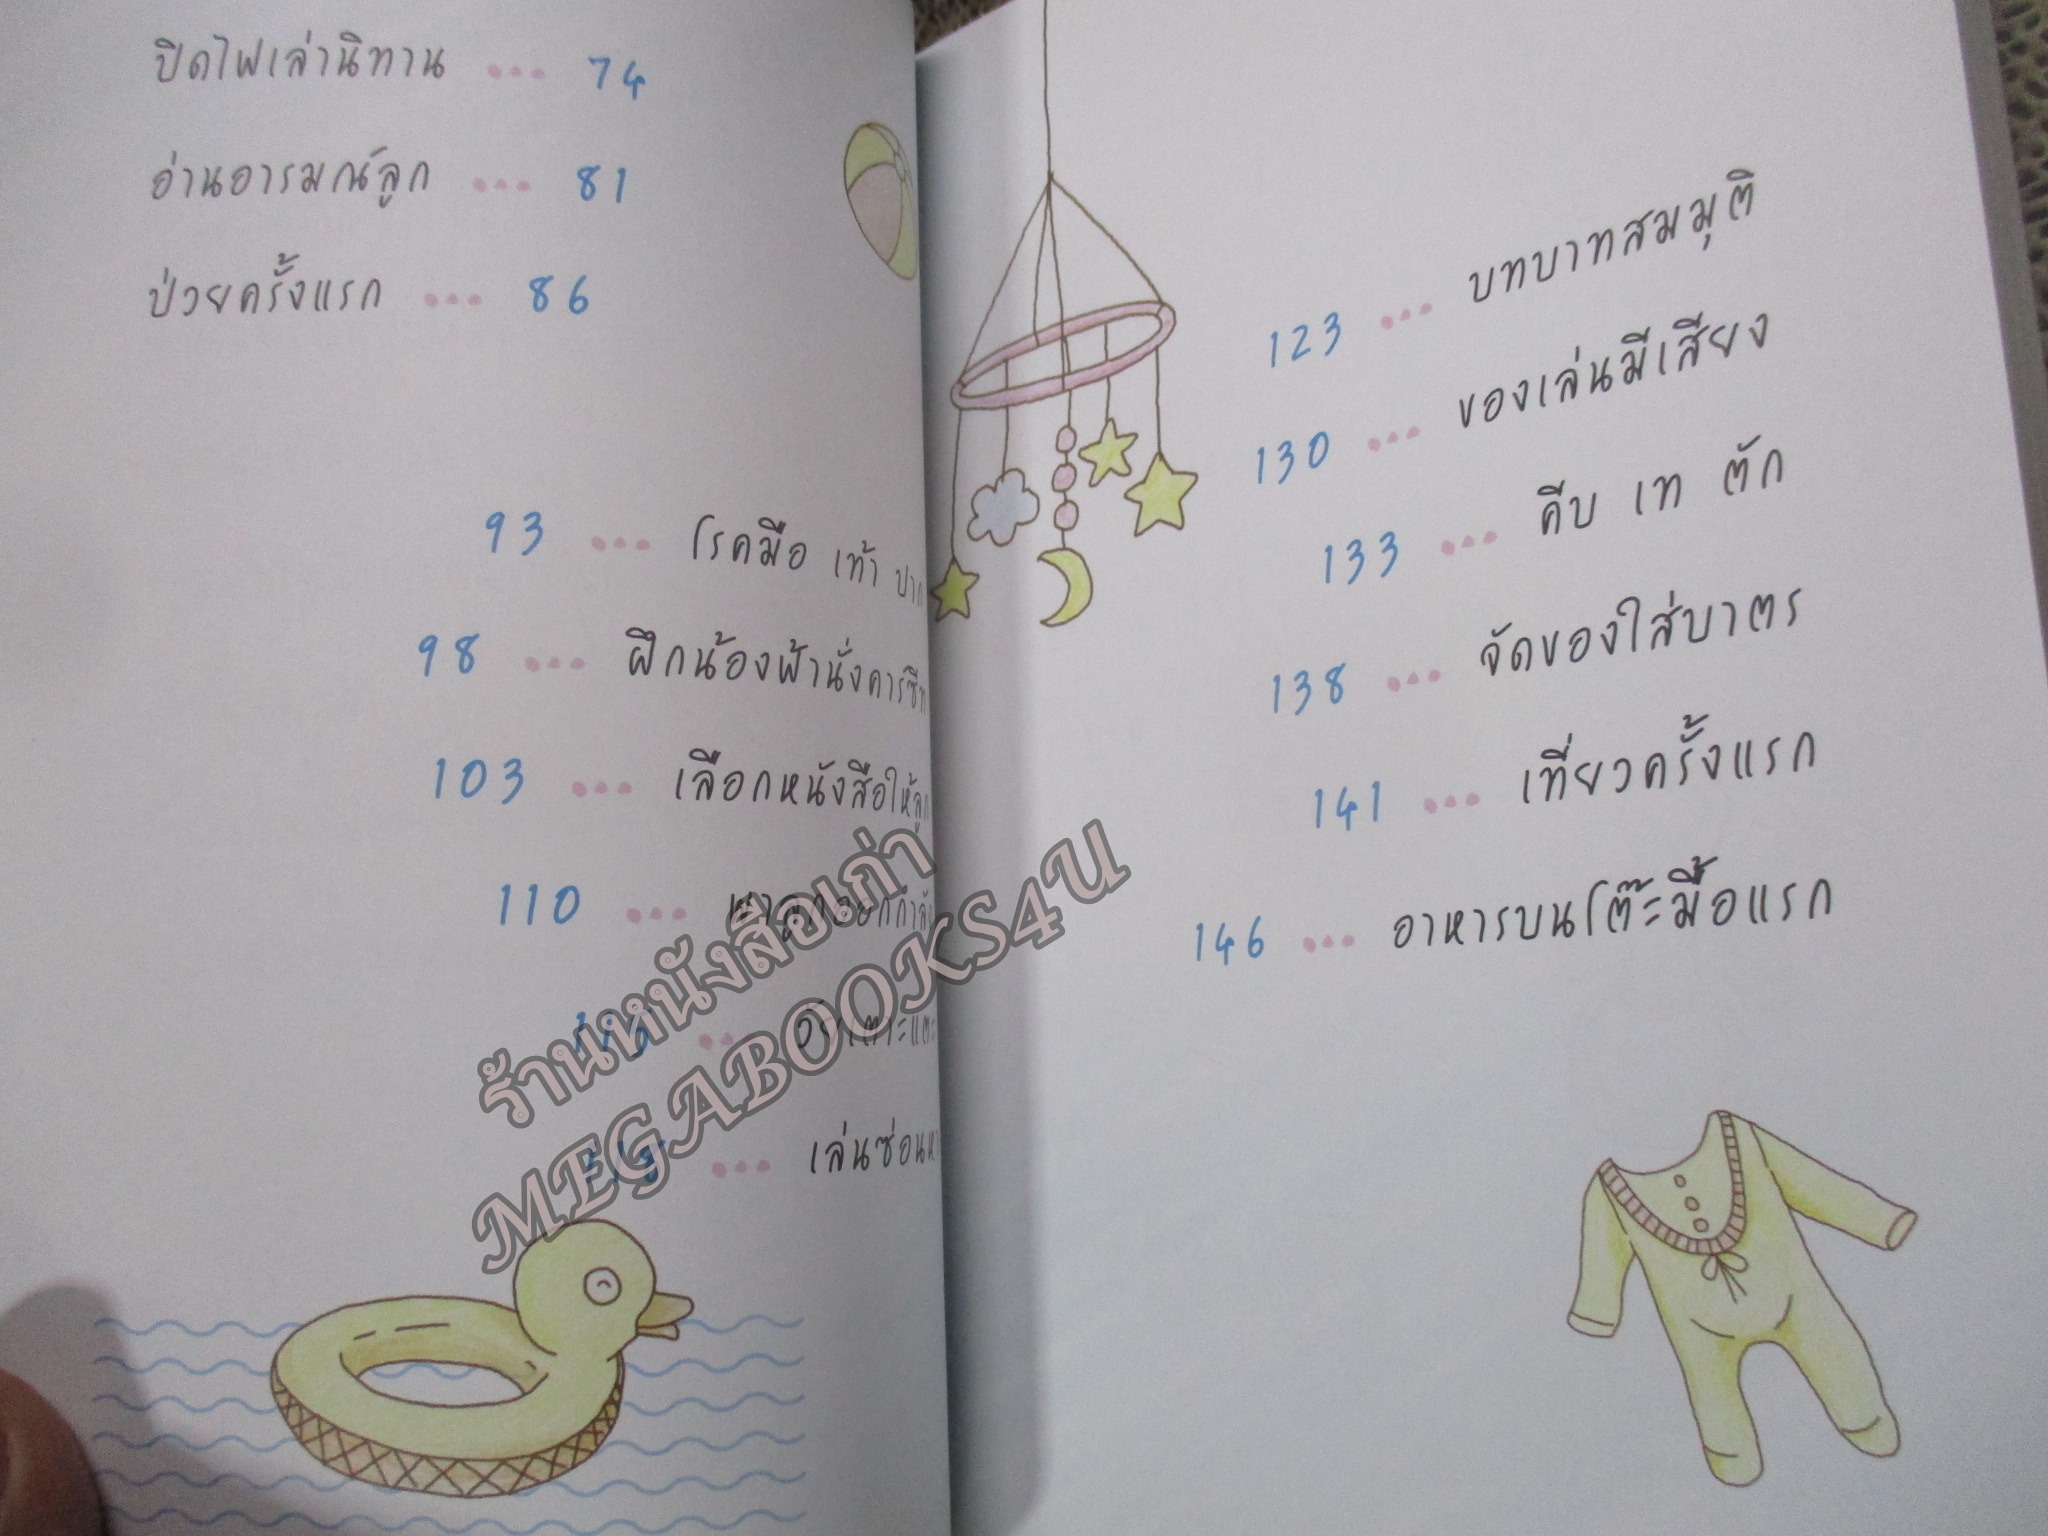 ปิดไฟเล่านิทาน ... 74
อ่านอารมณ์ลูก ... 81
ป่วยครั้งแรก ... 86
93 ... โรคมือ เท้า ปาก
98 ... ฝึกน้องฟ้านั่งคาร์ซีท
103 ... เลือกหนังสือให้ลูก
110 ...
...
... เล่นซ่อนหา
123 ... บทบาทสมมุติ
130 ... ของเล่นมีเสียง
133 ... คีบ เท ตัก
138 ... จัดของใส่บาตร
141 ... เที่ยวครั้งแรก
146 ... อาหารบนโต๊ะมื้อแรก
ร้านหนังสือเก่า
MEGABOOKS4U